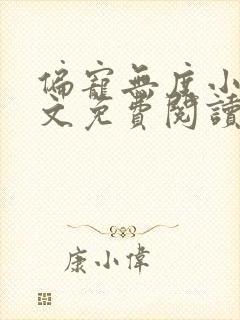 偏寵無度小
文免費閱讀
康小偉